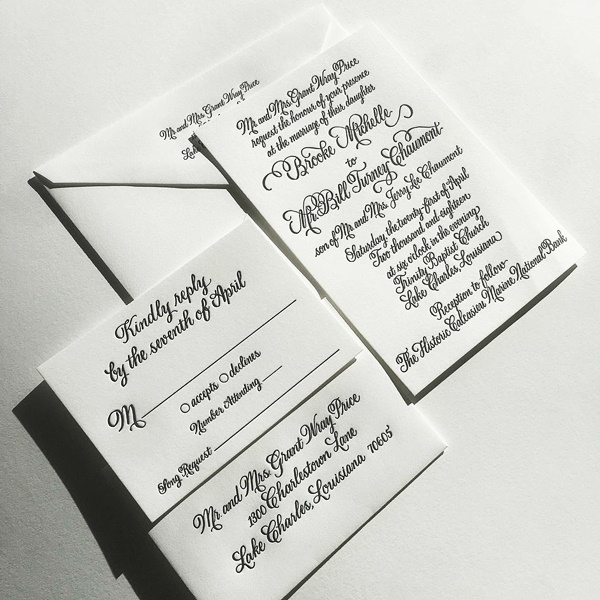 Mr and Mrs Grant Wray Price
Lake
Mr and Mrs Grant Wray Price
request the honour of your presence
at the marriage of their daughter
Brooke Michelle
to
Mr. Bill Turney Chaumont
son of Mr. and Mrs. Jerry Lee Chaumont
Saturday the twenty-first of April
Two thousand and eighteen
at six o'clock in the evening
Trinity Baptist Church
Lake Charles, Louisiana
Reception to follow
The Historic Calcasieu Marine National Bank
Kindly reply
by the seventh of April
M
accepts declines
Number Attending
Song Request
Mr and Mrs Grant Wray Price
1300 Charlestown Lane
Lake Charles, Louisiana 70605